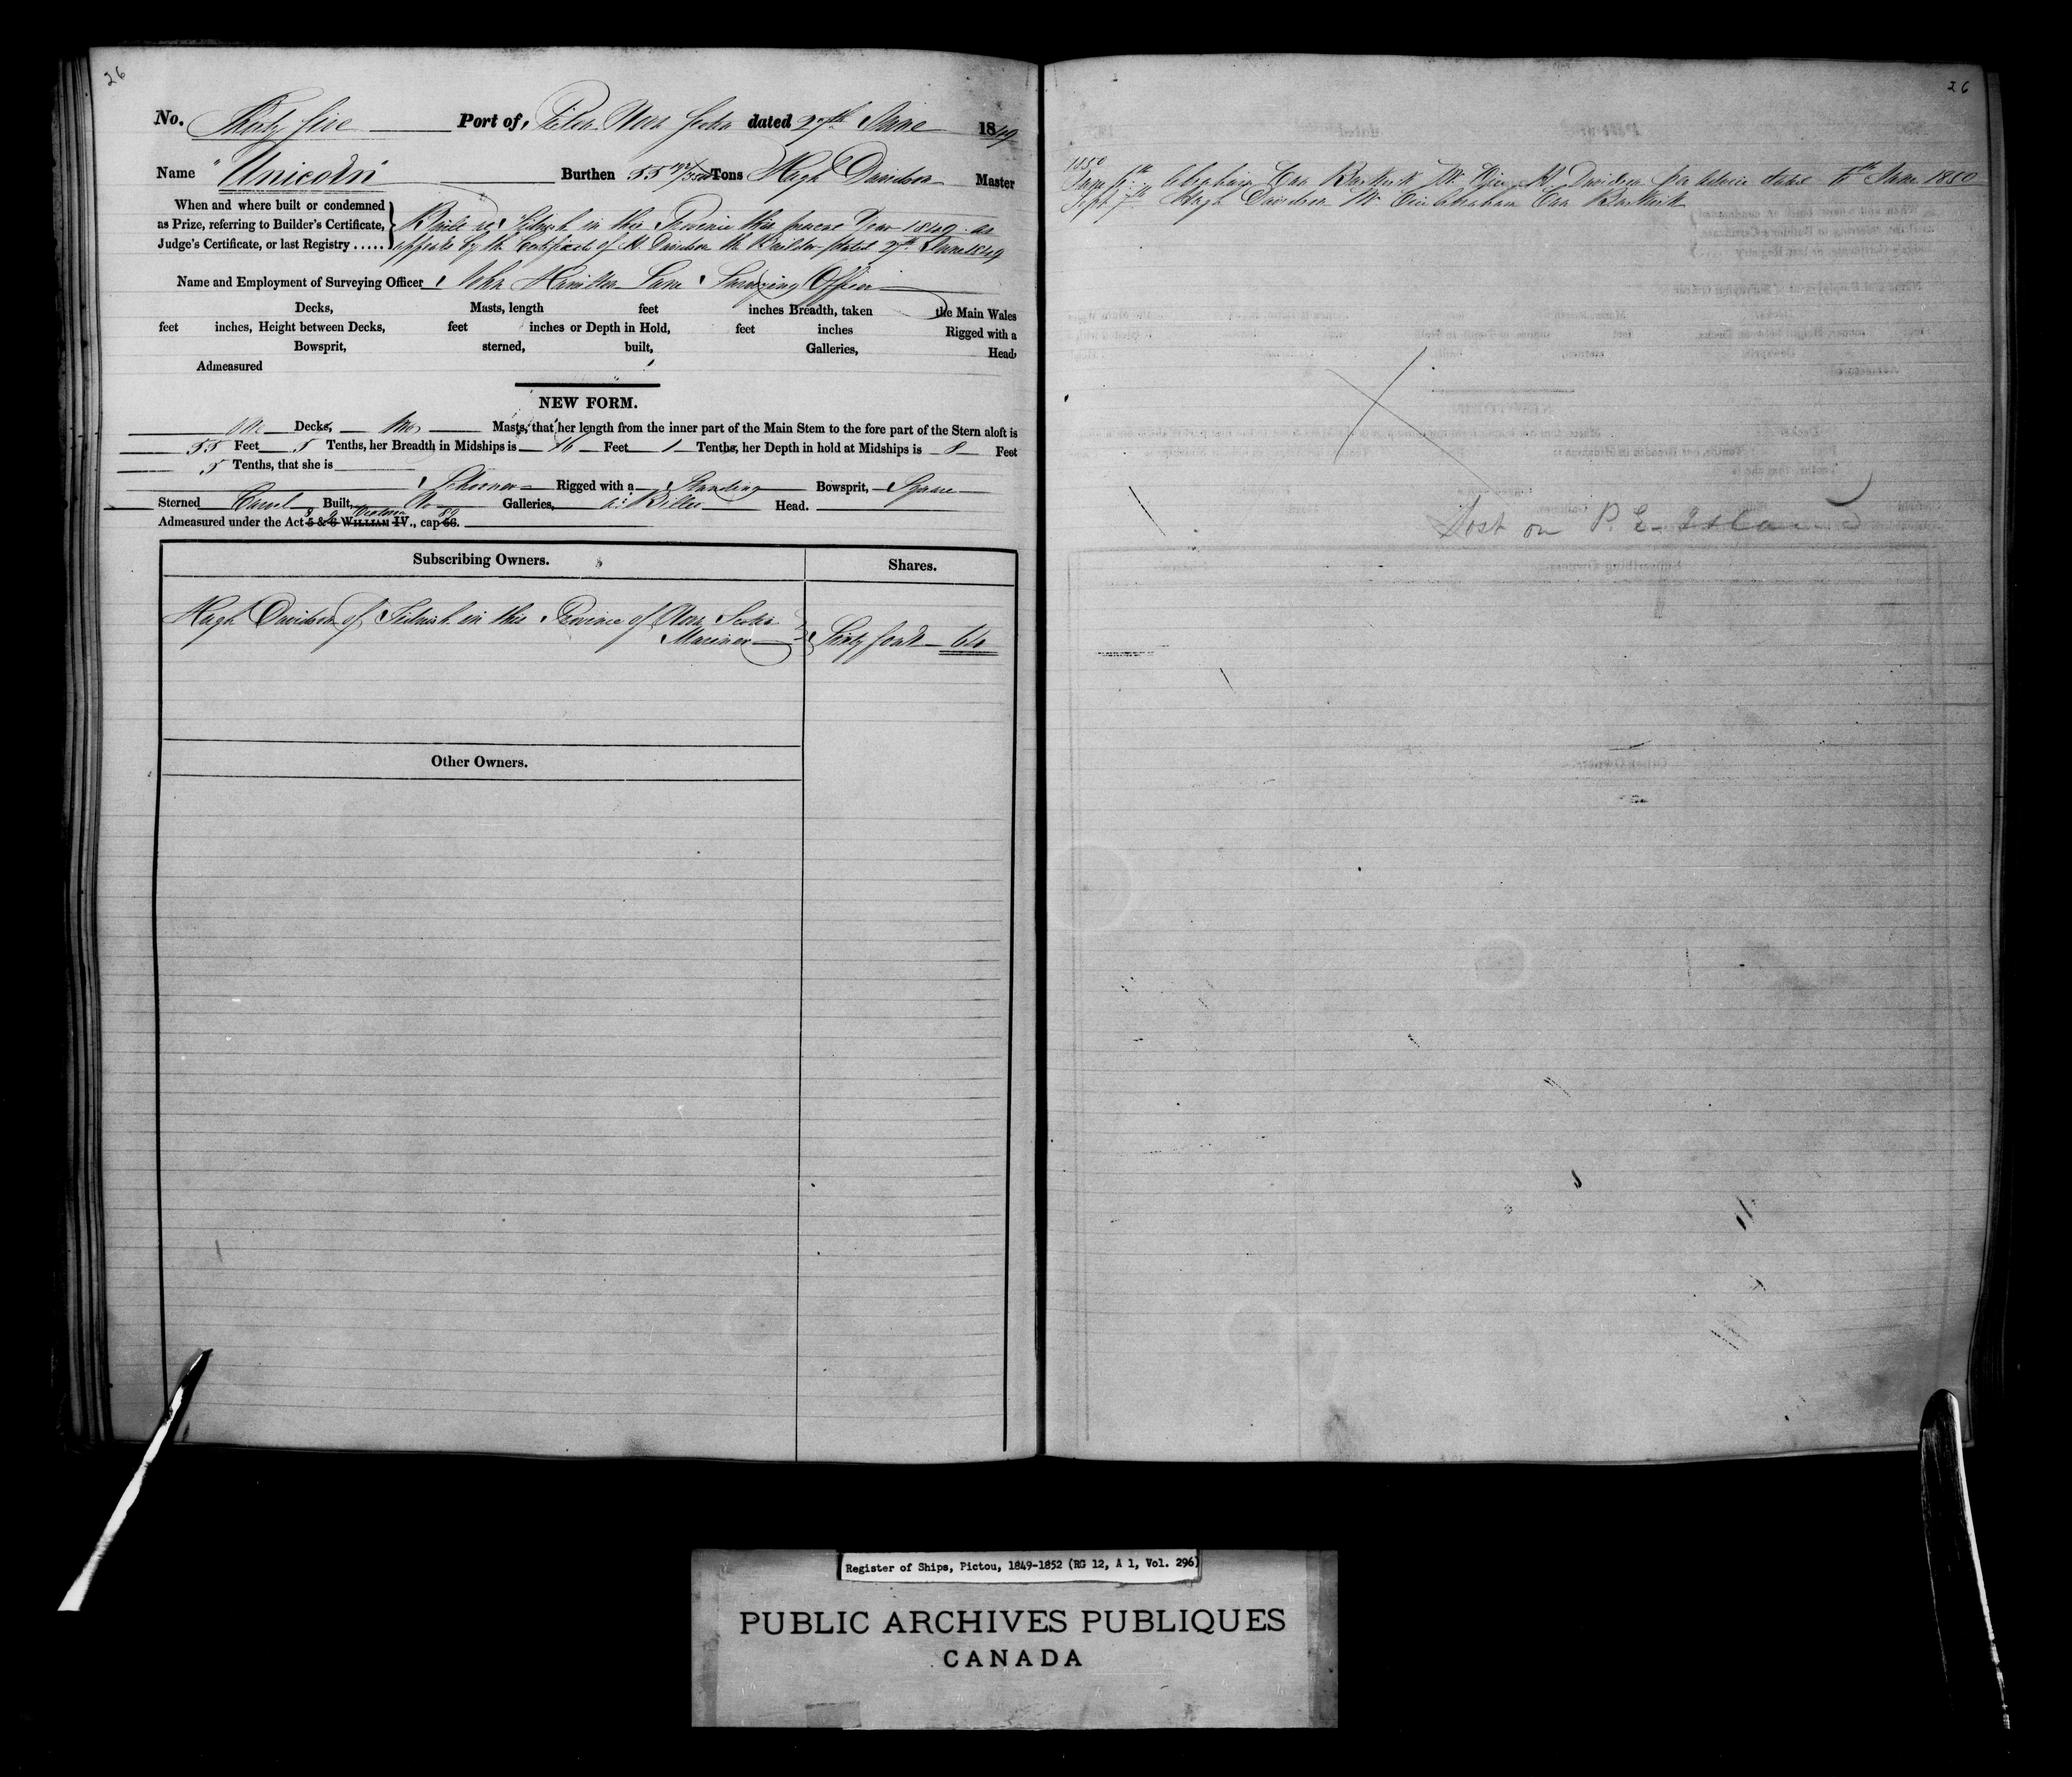 26
No. Thirty five Port of Pictou Nova Scotia dated 27th June 1849
Name "Unicorn" Burthen 55 Tons Hugh Davidson Master
When and where built or condemned
as Prize, referring to Builder's Certificate,
Judge's Certificate, or last Registry .....
Built at Tidnish in this Province this present Year 1849 as
appears by the Certificate of H. Davidson the Builder dated June 1849
Name and Employment of Surveying Officer John Hamilton Lane Surveying Officer
Decks, Masts, length feet inches Breadth, taken the Main Wales
feet inches, Height between Decks, feet inches or Depth in Hold, feet inches Rigged with a
Bowsprit, sterned, built, Galleries, Head,
Admeasured
NEW FORM.
One Decks, two Masts, that her length from the inner part of the Main Stem to the fore part of the Stern aloft is
55 Feet 5 Tenths, her Breadth in Midships is 16 Feet 1 Tenths, her Depth in hold at Midships is 8 Feet
5 Tenths, that she is
Schooner Rigged with a Standing Bowsprit, Square
Sterned Carvel Built, No Galleries, a Billet Head.
Admeasured under the Act 5 & 6 WILLIAM IV., cap 56.
8 9 Victoria 89
Subscribing Owners. Shares.
Hugh Davidson of Tidnish in this Province of Nova Scotia
Mariner Sixty four 64
Other Owners.
26
1850
June 6th Abraham Van Buskirk Mr. Vice H. Davidson per advice dated 6th June 1850
Sept 7th Hugh Davidson Mr. Vice Abraham Van Buskirk
Lost on P. E. Island
Register of Ships, Pictou, 1849-1852 (RG 12, A 1, Vol. 296)
PUBLIC ARCHIVES PUBLIQUES
CANADA